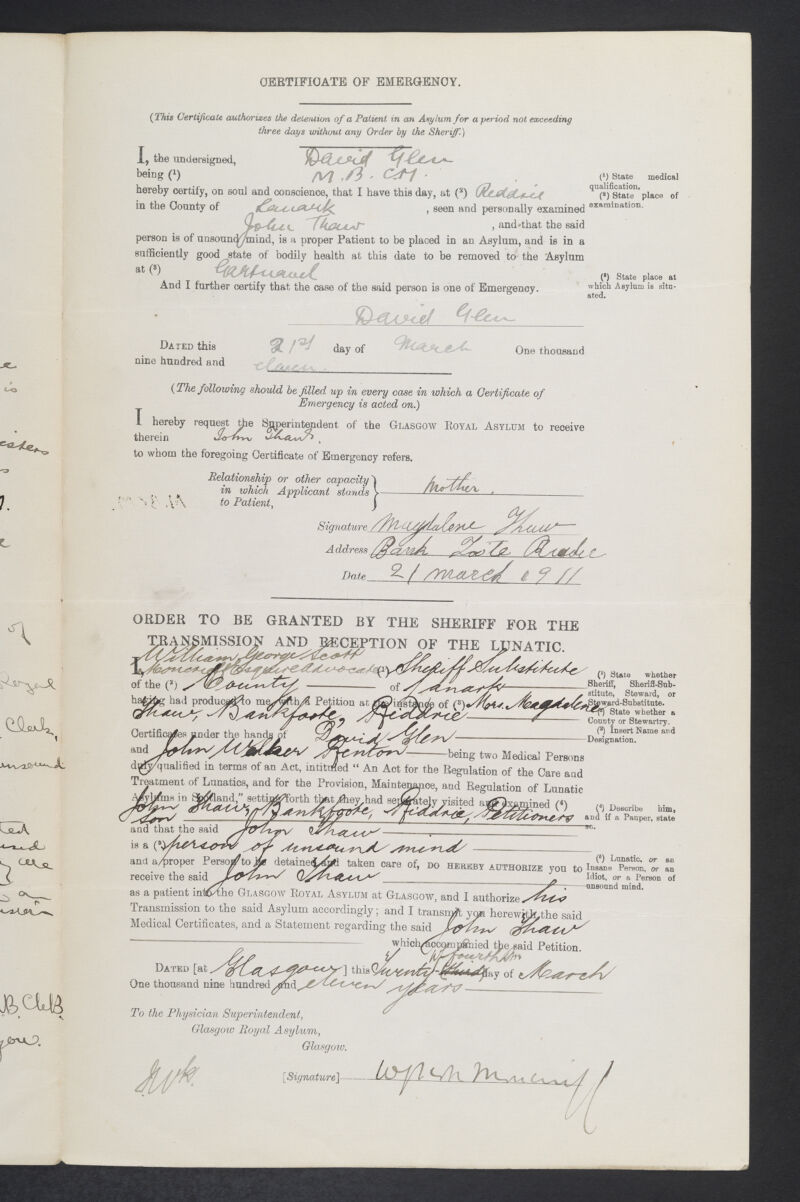 CERTIFICATE OF EMERGENCY.
(This Certificate authorizes the detention of a Patient in an Asylum for a period not exceeding
three days without any Order by the Sheriff.)
I, the undersigned, David Glen
being (1) M.B. C.M.
(1) State medical
qualification.
hereby certify, on soul and conscience, that I have this day, at (2) Riddrie
(2) State place of
examination.
in the County of Lanark , seen and personally examined
John Thaw , and that the said
person is of unsound mind, is a proper Patient to be placed in an Asylum, and is in a
sufficiently good state of bodily health at this date to be removed to the Asylum
at (3) Gartnavel
(3) State place at
which Asylum is situ-
ated.
And I further certify that the case of the said person is one of Emergency.
David Glen
DATED this 21st day of March One thousand
nine hundred and eleven.
(The following should be filled up in every case in which a Certificate of
Emergency is acted on.)
I hereby request the Superintendent of the GLASGOW ROYAL ASYLUM to receive
therein John Thaw.
to whom the foregoing Certificate of Emergency refers.
Relationship or other capacity
in which Applicant stands
to Patient,
Mother.
Signature Magdalene Thaw
Address Bank Riddrie
Date 21 March 1911
ORDER TO BE GRANTED BY THE SHERIFF FOR THE
TRANSMISSION AND RECEPTION OF THE LUNATIC.
William George Scott
I, Moncrieff Esquire Advocate (1) Sheriff Substitute
(1) State whether
Sheriff, Sheriff-Sub-
stitute, Steward, or
Steward-Substitute.
of the (2) County of Lanark
having had produced to me with a Petition at the instance of (3) Mrs. Magdalene
(2) State whether a
County or Stewartry.
Thaw, Bankfoote, Riddrie
(3) Insert Name and
Designation.
Certificates under the hands of David Glen
and John Walker Kenton being two Medical Persons
duly qualified in terms of an Act, intituled "An Act for the Regulation of the Care and
Treatment of Lunatics, and for the Provision, Maintenance, and Regulation of Lunatic
Asylums in Scotland," setting forth that they had separately visited and examined (4)
John Thaw, Bankfoote, Riddrie, Petitioners
son
(4) Describe him,
and if a Pauper, state
so.
and that the said John Thaw
is a (5) person of unsound mind
and a proper Person to be detained and taken care of, DO HEREBY AUTHORIZE you to
(5) Lunatic, or an
Insane Person, or an
Idiot, or a Person of
unsound mind.
receive the said John Thaw
as a patient into the GLASGOW ROYAL ASYLUM AT GLASGOW, and I authorize his
Transmission to the said Asylum accordingly; and I transmit you herewith the said
Medical Certificates, and a Statement regarding the said John Thaw
which accompanied the said Petition.
DATED [at Glasgow ] this Twenty fourth third day of March
One thousand nine hundred and eleven years
To the Physician Superintendent,
Glasgow Royal Asylum,
Glasgow.
[Signature]
of
Royal
Clerk,
unsound
care
B. Ch.B.
you.